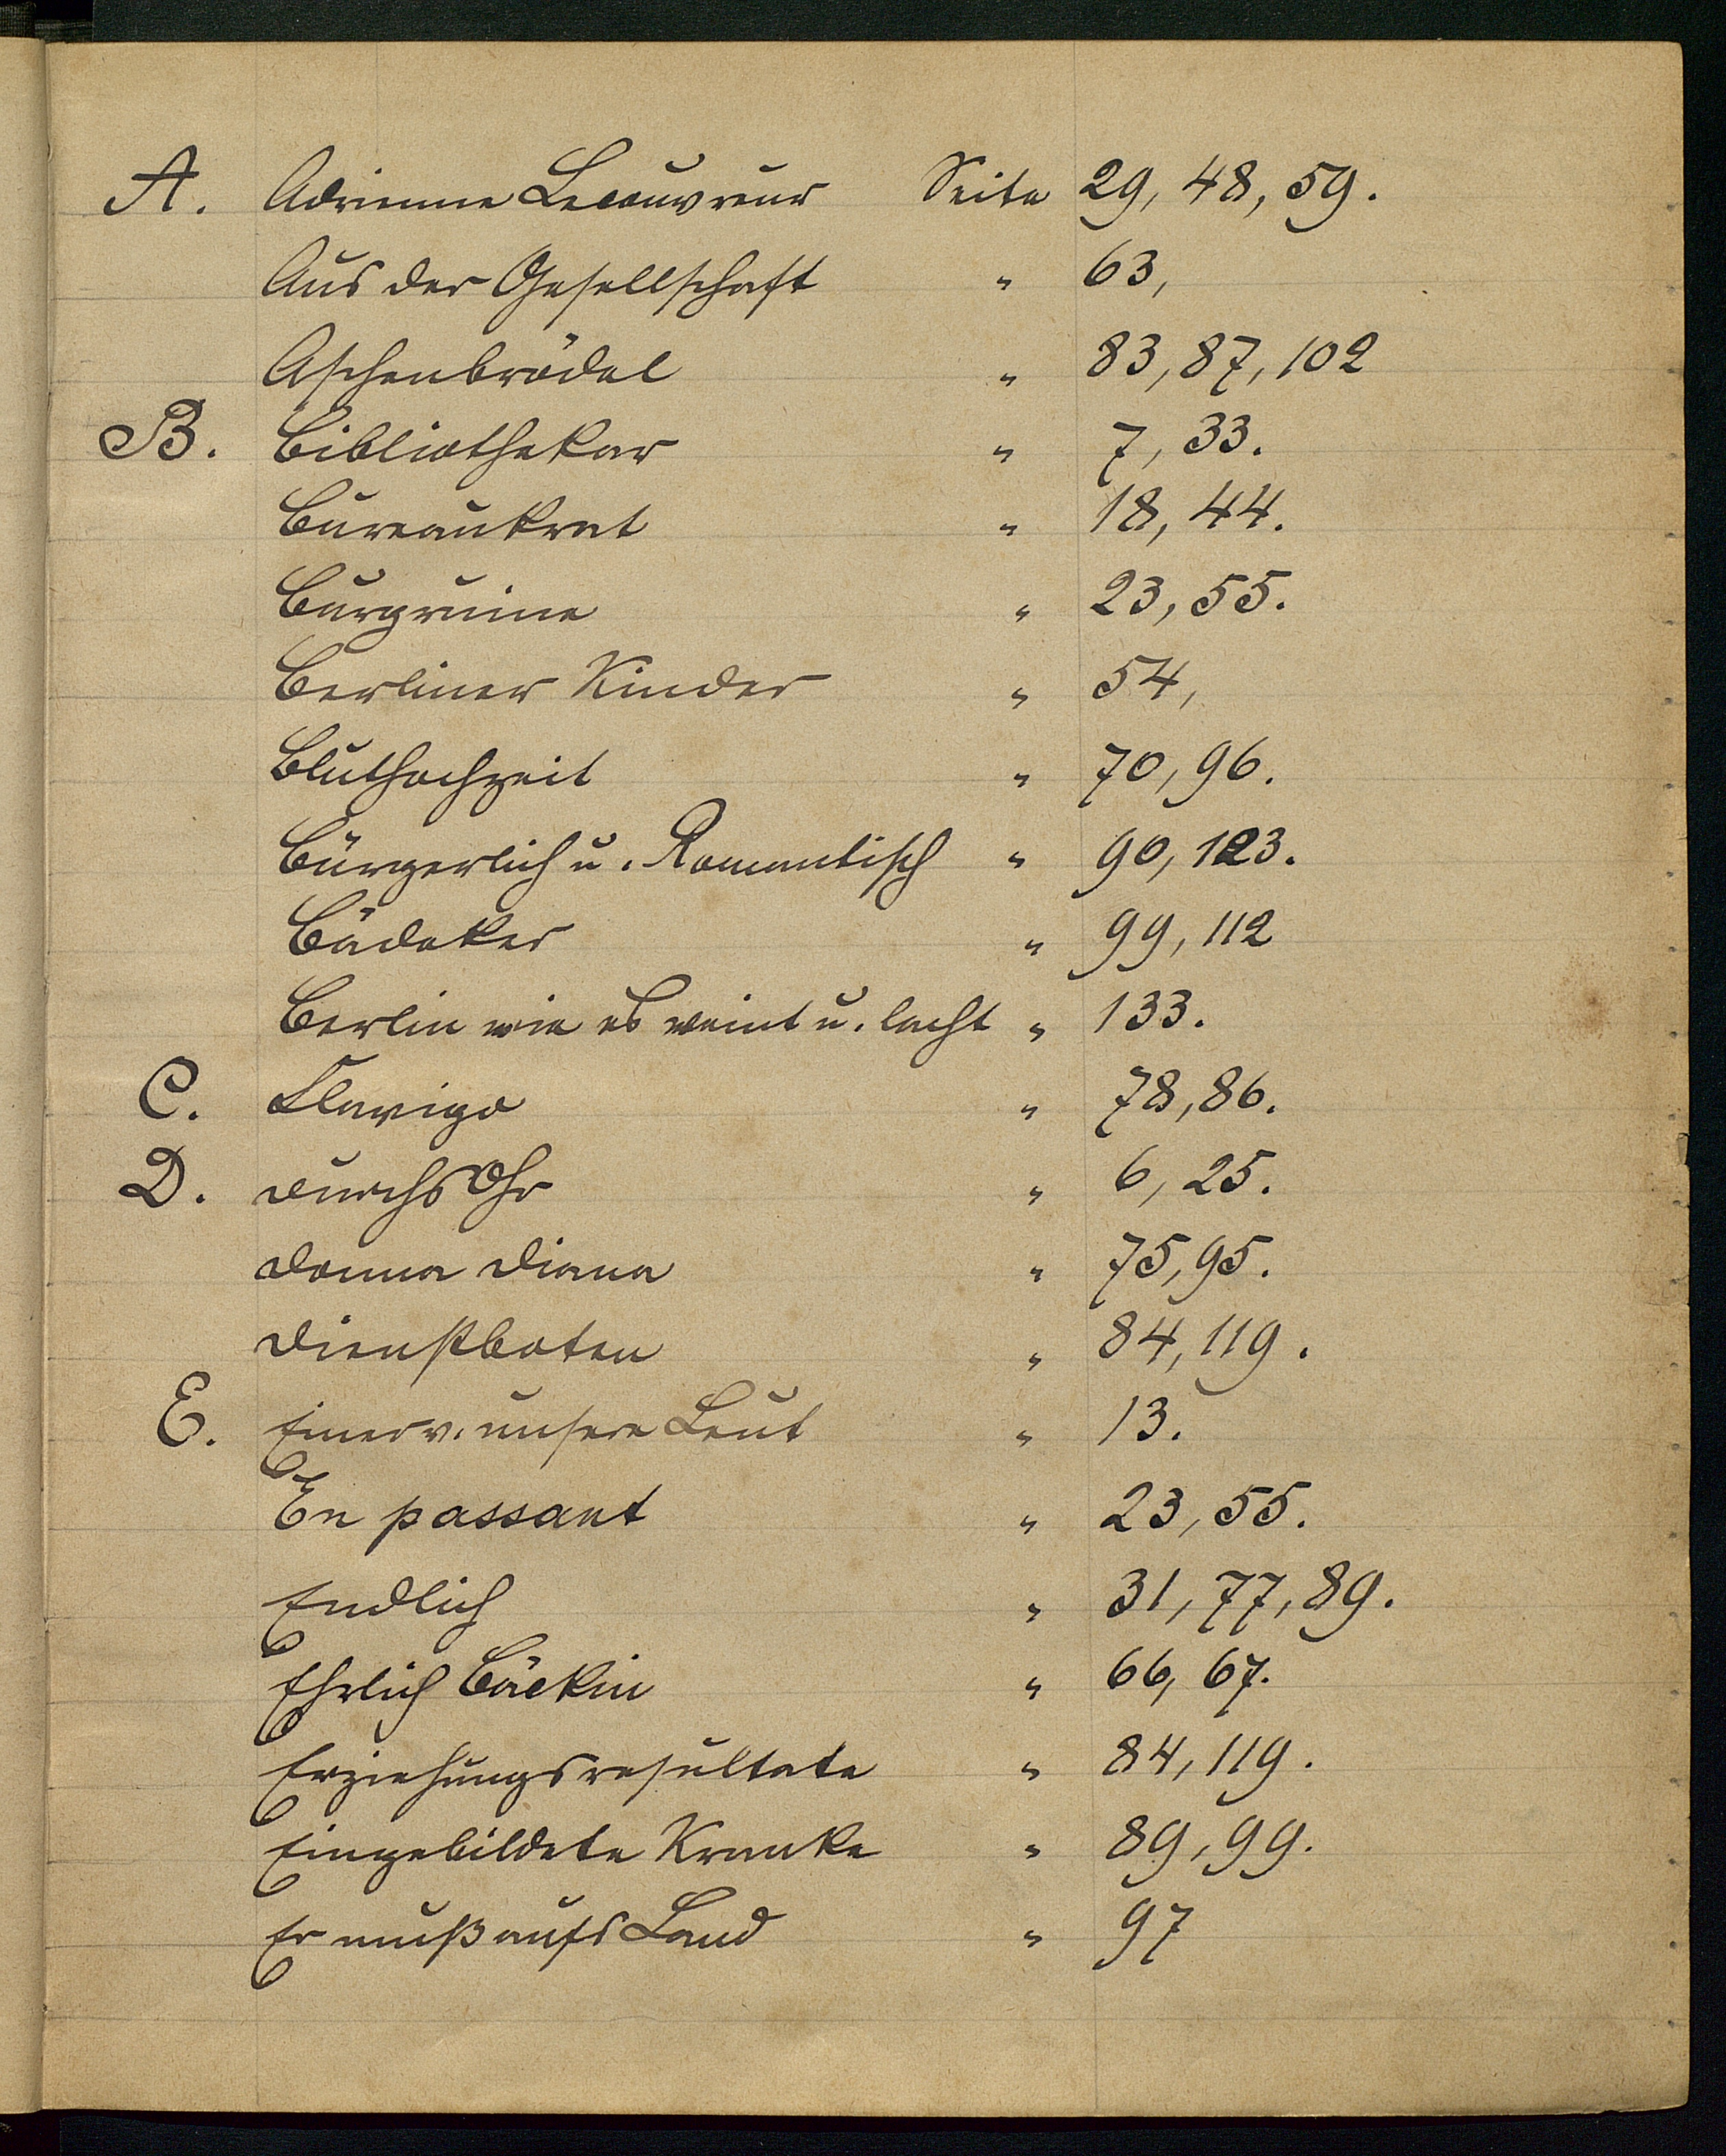 A. Adrienne Lecouvreur Seite 29, 48, 59.
Aus der Gesellschaft " 63,
Aschenbrödel " 83, 87, 102
B. Bibliothekar " 7, 33.
Bureaukrat " 18, 44.
Burgruine " 23, 55.
Berliner Kinder " 54,
Bluthochzeit " 70, 96.
Bürgerlich u. Romantisch " 90, 123.
Bädeker " 99, 112
Berlin wie es weint u. lacht " 133.
C. Clavigo " 78, 86.
D. Durchs Ohr " 6, 25.
Donna Diana " 75, 95.
Dienstboten " 84, 119.
E. Einer v. unsere Leut " 13.
En passant " 23, 55.
Endlich " 31, 77, 89.
Ehrlich Bäckin " 66, 67.
Erziehungsresultate " 84, 119.
Eingebildete Kranke " 89, 99.
Er muß aufs Land " 97